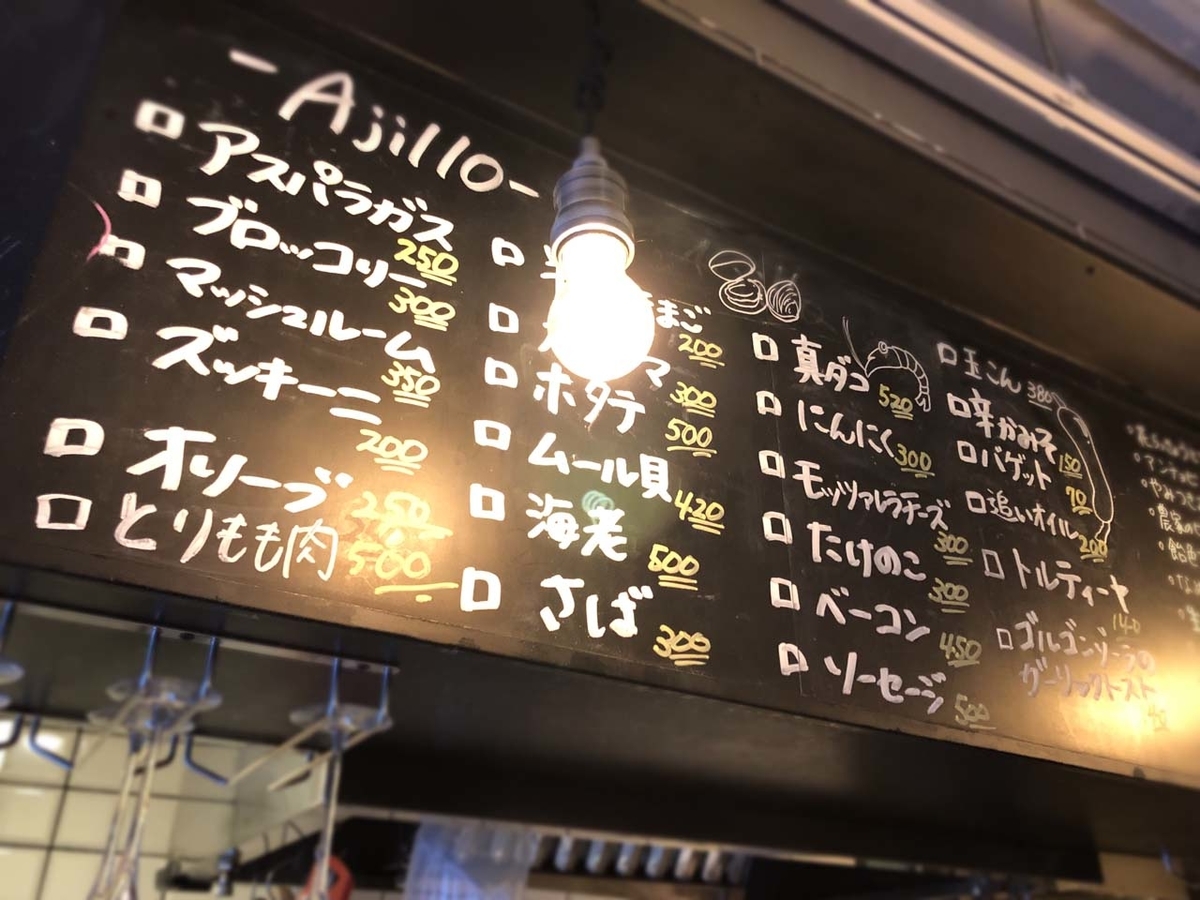 - Ajillo -
□ アスパラガス 250
□ ブロッコリー 300
□ マッシュルーム 350
□ ズッキーニ 200
□ オリーブ 250
□ とりもも肉 500
□ まご 200
□ マ 300
□ ホタテ 500
□ ムール貝 420
□ 海老 500
□ さば 300
□ 真ダコ 520
□ にんにく 300
□ モッツァレラチーズ 300
□ たけのこ 300
□ ベーコン 450
□ ソーセージ 500
□ 玉こん 380
□ 辛かみそ 150
□ バゲット 70
□ 追いオイル 200
□ トルティーヤ 140
□ ゴルゴンゾーラの
ガーリックトースト